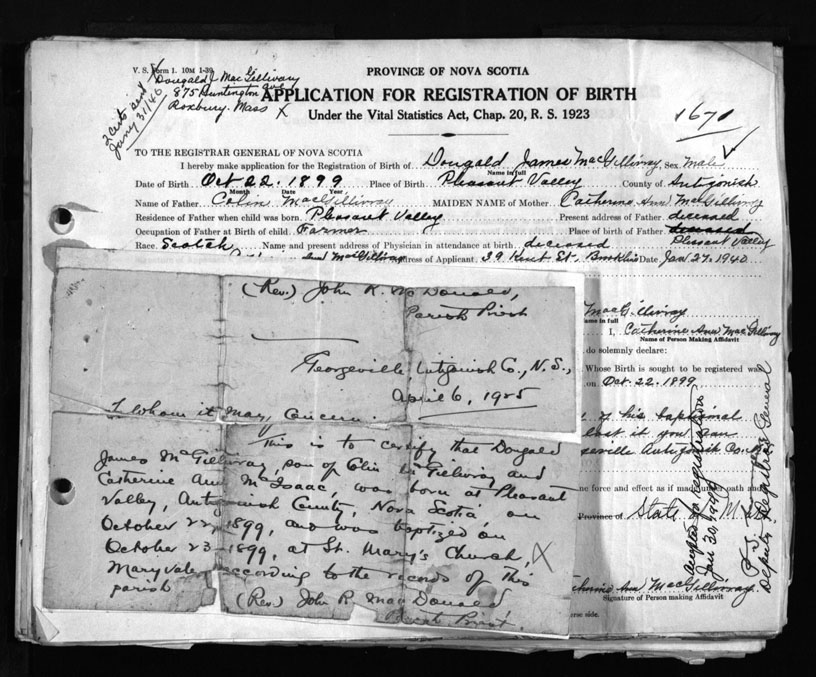 V. S. Form 1. 10M 1-39
Dougald J MacGillivary
875 Huntington Ave
Roxbury. Mass X
2 certs sent
Jany 31/40
PROVINCE OF NOVA SCOTIA
APPLICATION FOR REGISTRATION OF BIRTH
Under the Vital Statistics Act, Chap. 20, R. S. 1923
1671
TO THE REGISTRAR GENERAL OF NOVA SCOTIA
I hereby make application for the Registration of Birth of Dougald James MacGillivray, Sex male
Name in full
Date of Birth Oct 22. 1899 Place of Birth Pleasant Valley County of Antigonish
Month Date Year
Name of Father Colin MacGillivray MAIDEN NAME of Mother Catherine Ann MacGillivray
Residence of Father when child was born. Pleasant Valley Present address of Father deceased
Occupation of Father at Birth of child. Farmer Place of birth of Father deceased
Pleasant Valley
Race. Scotch Name and present address of Physician in attendance at birth. deceased
Ann MacGillivray Address of Applicant. 39 Kent St. Brookline Date Jan 27. 1940
MacGillivray
Name in full
I, Catherine Ann MacGillivray
Name of Person Making Affidavit
do solemnly declare:
Whose Birth is sought to be registered was
on Oct. 22. 1899
of his baptismal
lost it you can
Antigonish County
me force and effect as if made under oath and
Province of State of
Catherine Ann MacGillivray.
Signature of Person making Affidavit
rse side.
accepted for registration
Jan 30, 1940
Deputy Registrar General
(Rev.) John R. McDonald,
Parish Priest
Georgeville, Antigonish Co., N.S.,
April 6, 1925
To whom it may concern.
This is to certify that Dougald
James McGillivray, son of Colin McGillivray and
Catherine Ann McIsaac, was born at Pleasant
Valley, Antigonish County, Nova Scotia, on
October 22, 1899, and was baptized on
October 23 1899, at St. Mary's Church, X
Maryvale according to the records of this
parish
(Rev.) John R. MacDonald
Parish Priest.